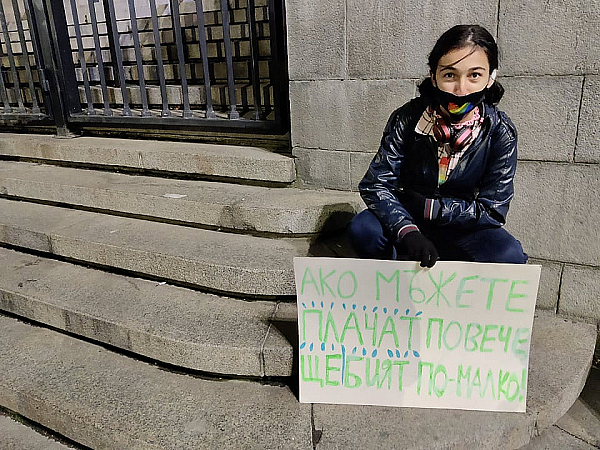 АКО МЪЖЕТЕ
ПЛАЧАТ ПОВЕЧЕ
ЩЕ БИЯТ ПО-МАЛКО!